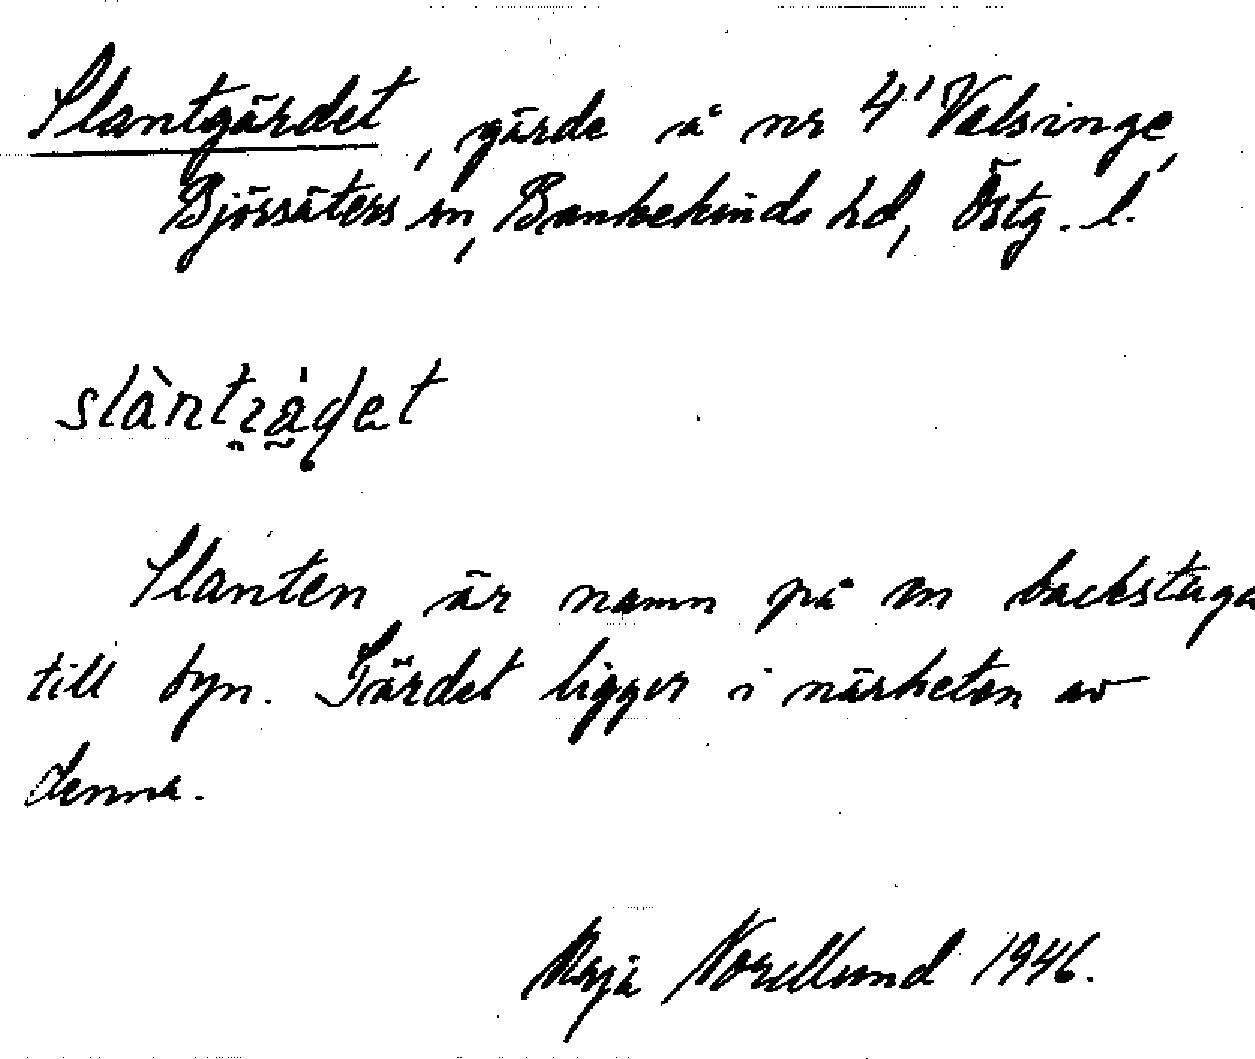 Slantgärdet, gärde å nr 4 Valsinge,
Björsäters sn, Bankekinds hd, Östg. l.
Slanten är namn på en backstuga
till byn. Gärdet ligger i närheten av
denna.
Norellund 1946.